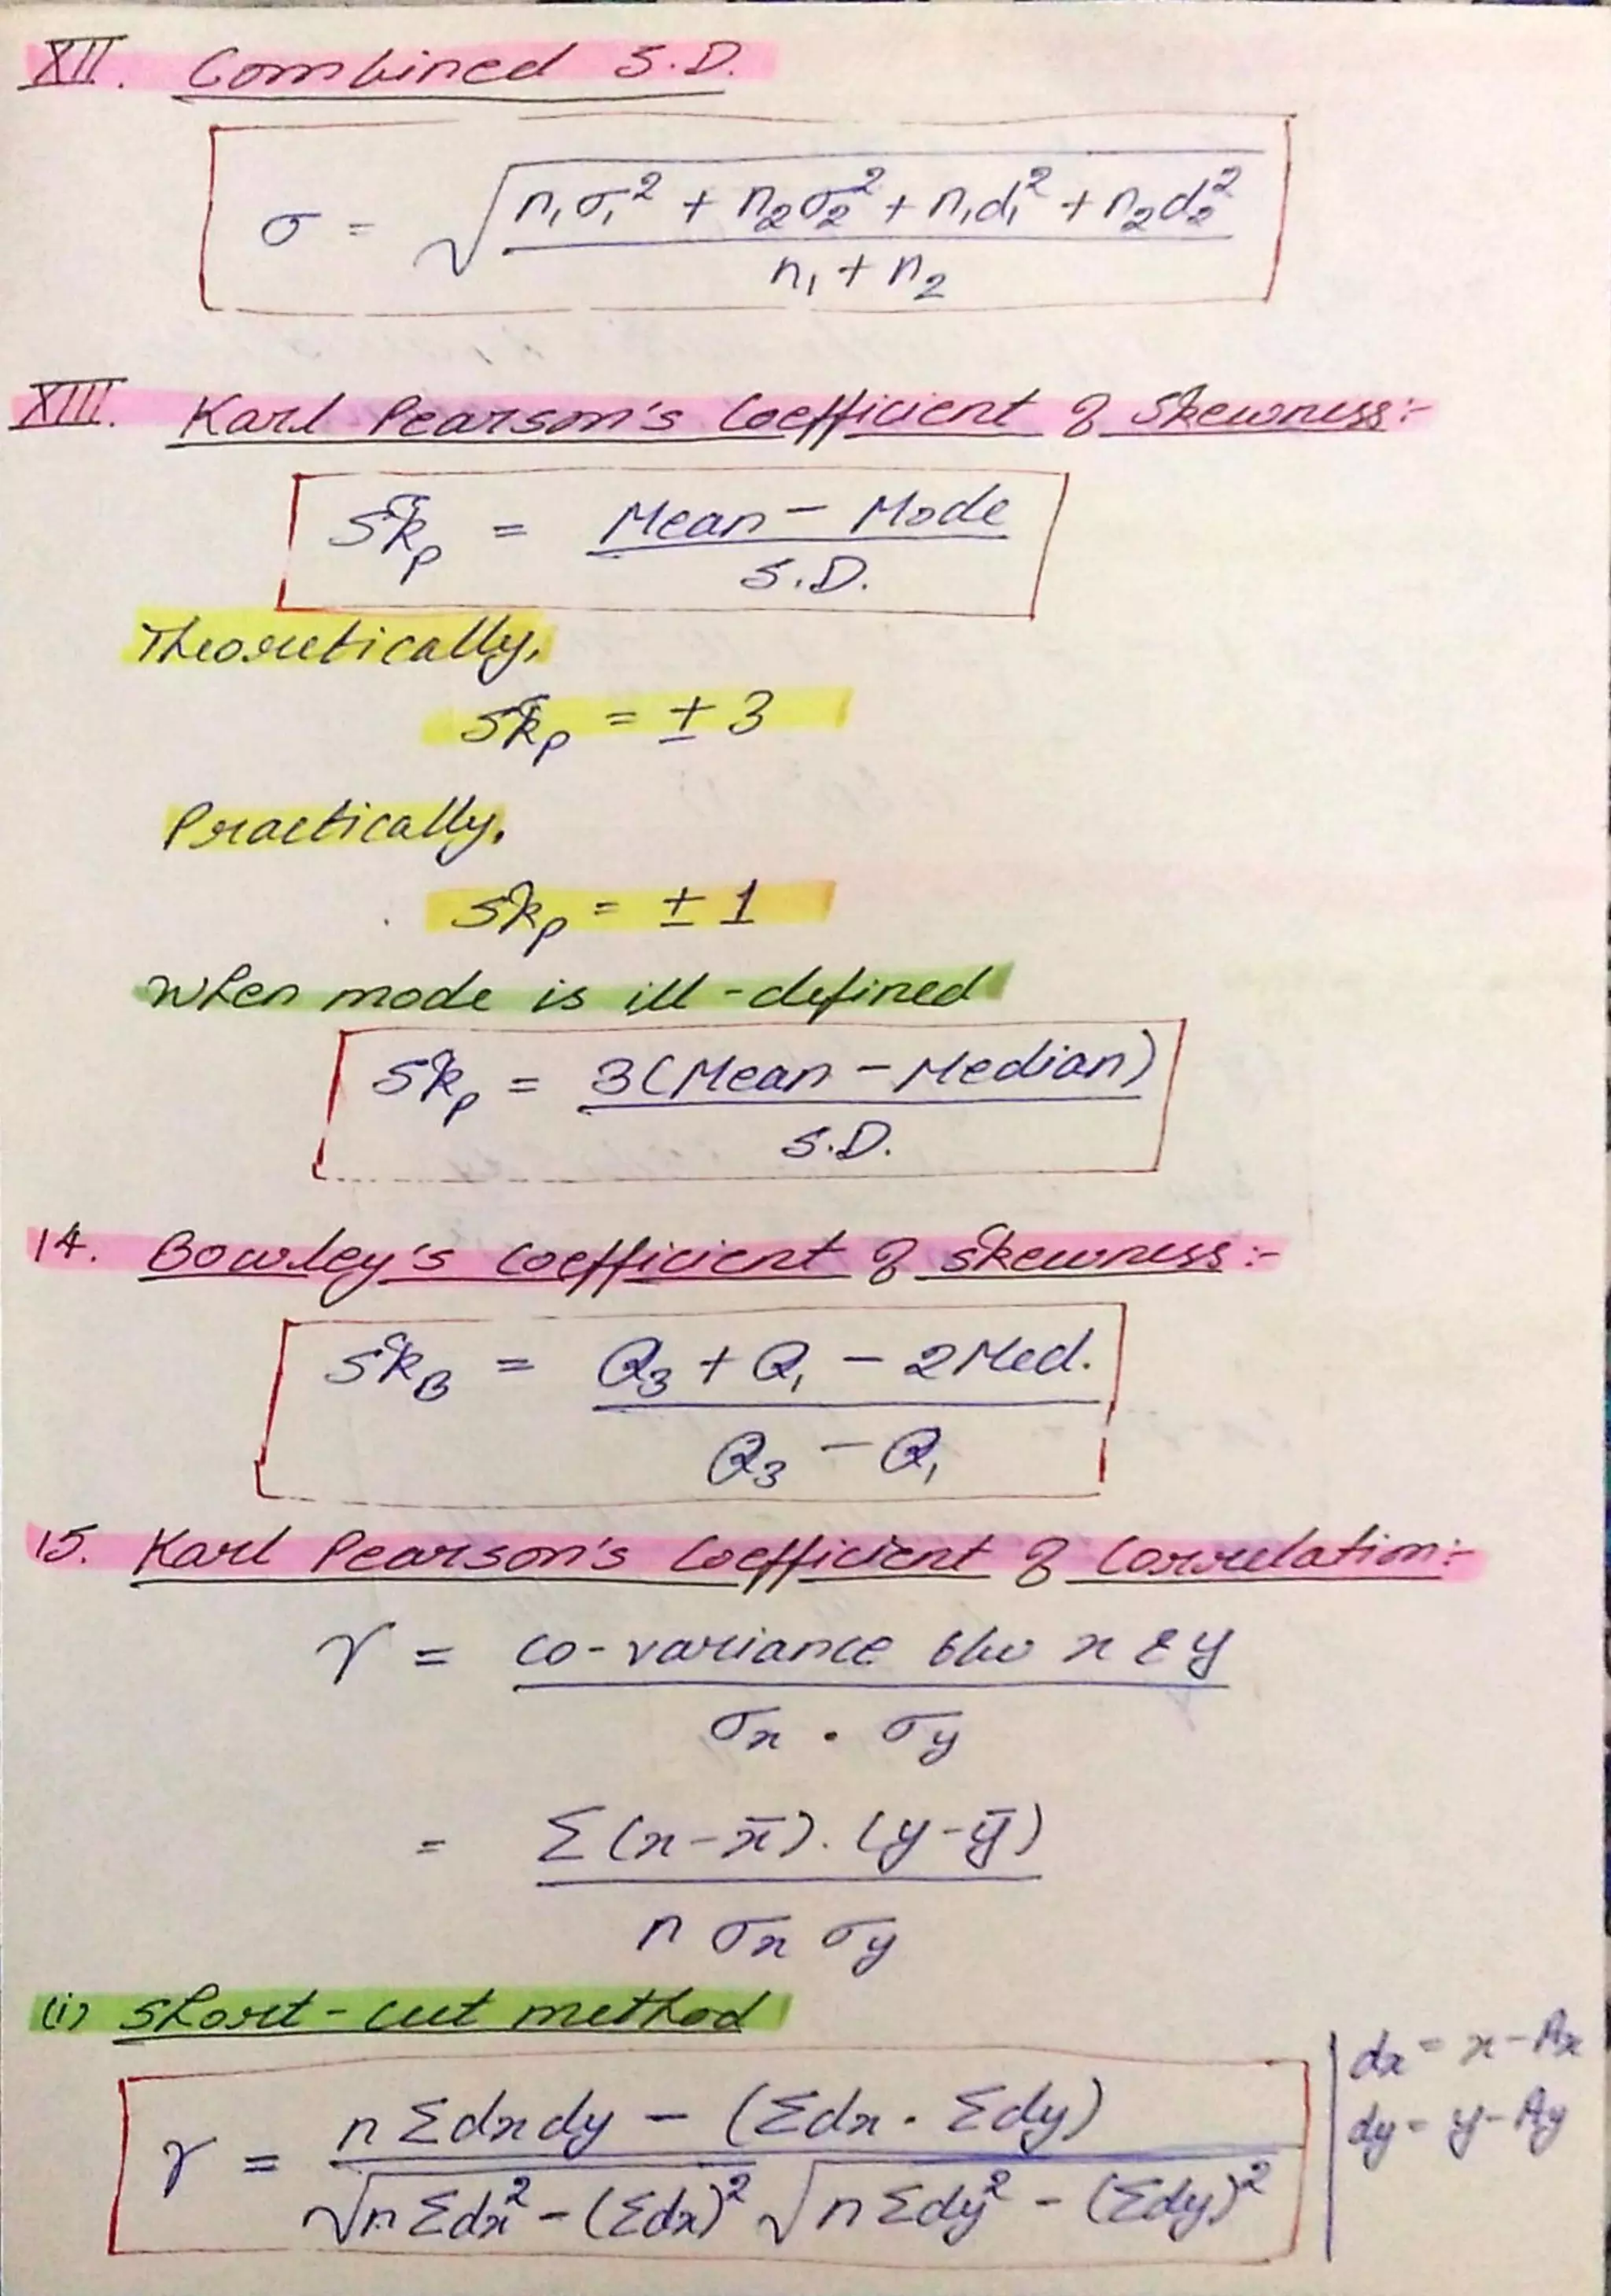 XII. Combined S.D.
σ = √((n₁σ₁² + n₂σ₂² + n₁d₁² + n₂d₂²) / (n₁ + n₂))
XIII. Karl Pearson's Coefficient of Skewness:-
Skₚ = (Mean - Mode) / S.D.
Theoretically,
Skₚ = ± 3
Practically,
Skₚ = ± 1
When mode is ill-defined
Skₚ = 3(Mean - Median) / S.D.
14. Bowley's Coefficient of Skewness:-
Sk_B = (Q₃ + Q₁ - 2 Med.) / (Q₃ - Q₁)
15. Karl Pearson's Coefficient of Correlation:-
r = co-variance b/w x & y / (σx · σy)
= Σ(x-x̄).(y-ȳ) / (n σx σy)
(i) Short-cut method
r = (n Σdxdy - (Σdx · Σdy)) / (√(n Σdx² - (Σdx)²) √(n Σdy² - (Σdy)²))
dx = x - Ax
dy = y - Ay